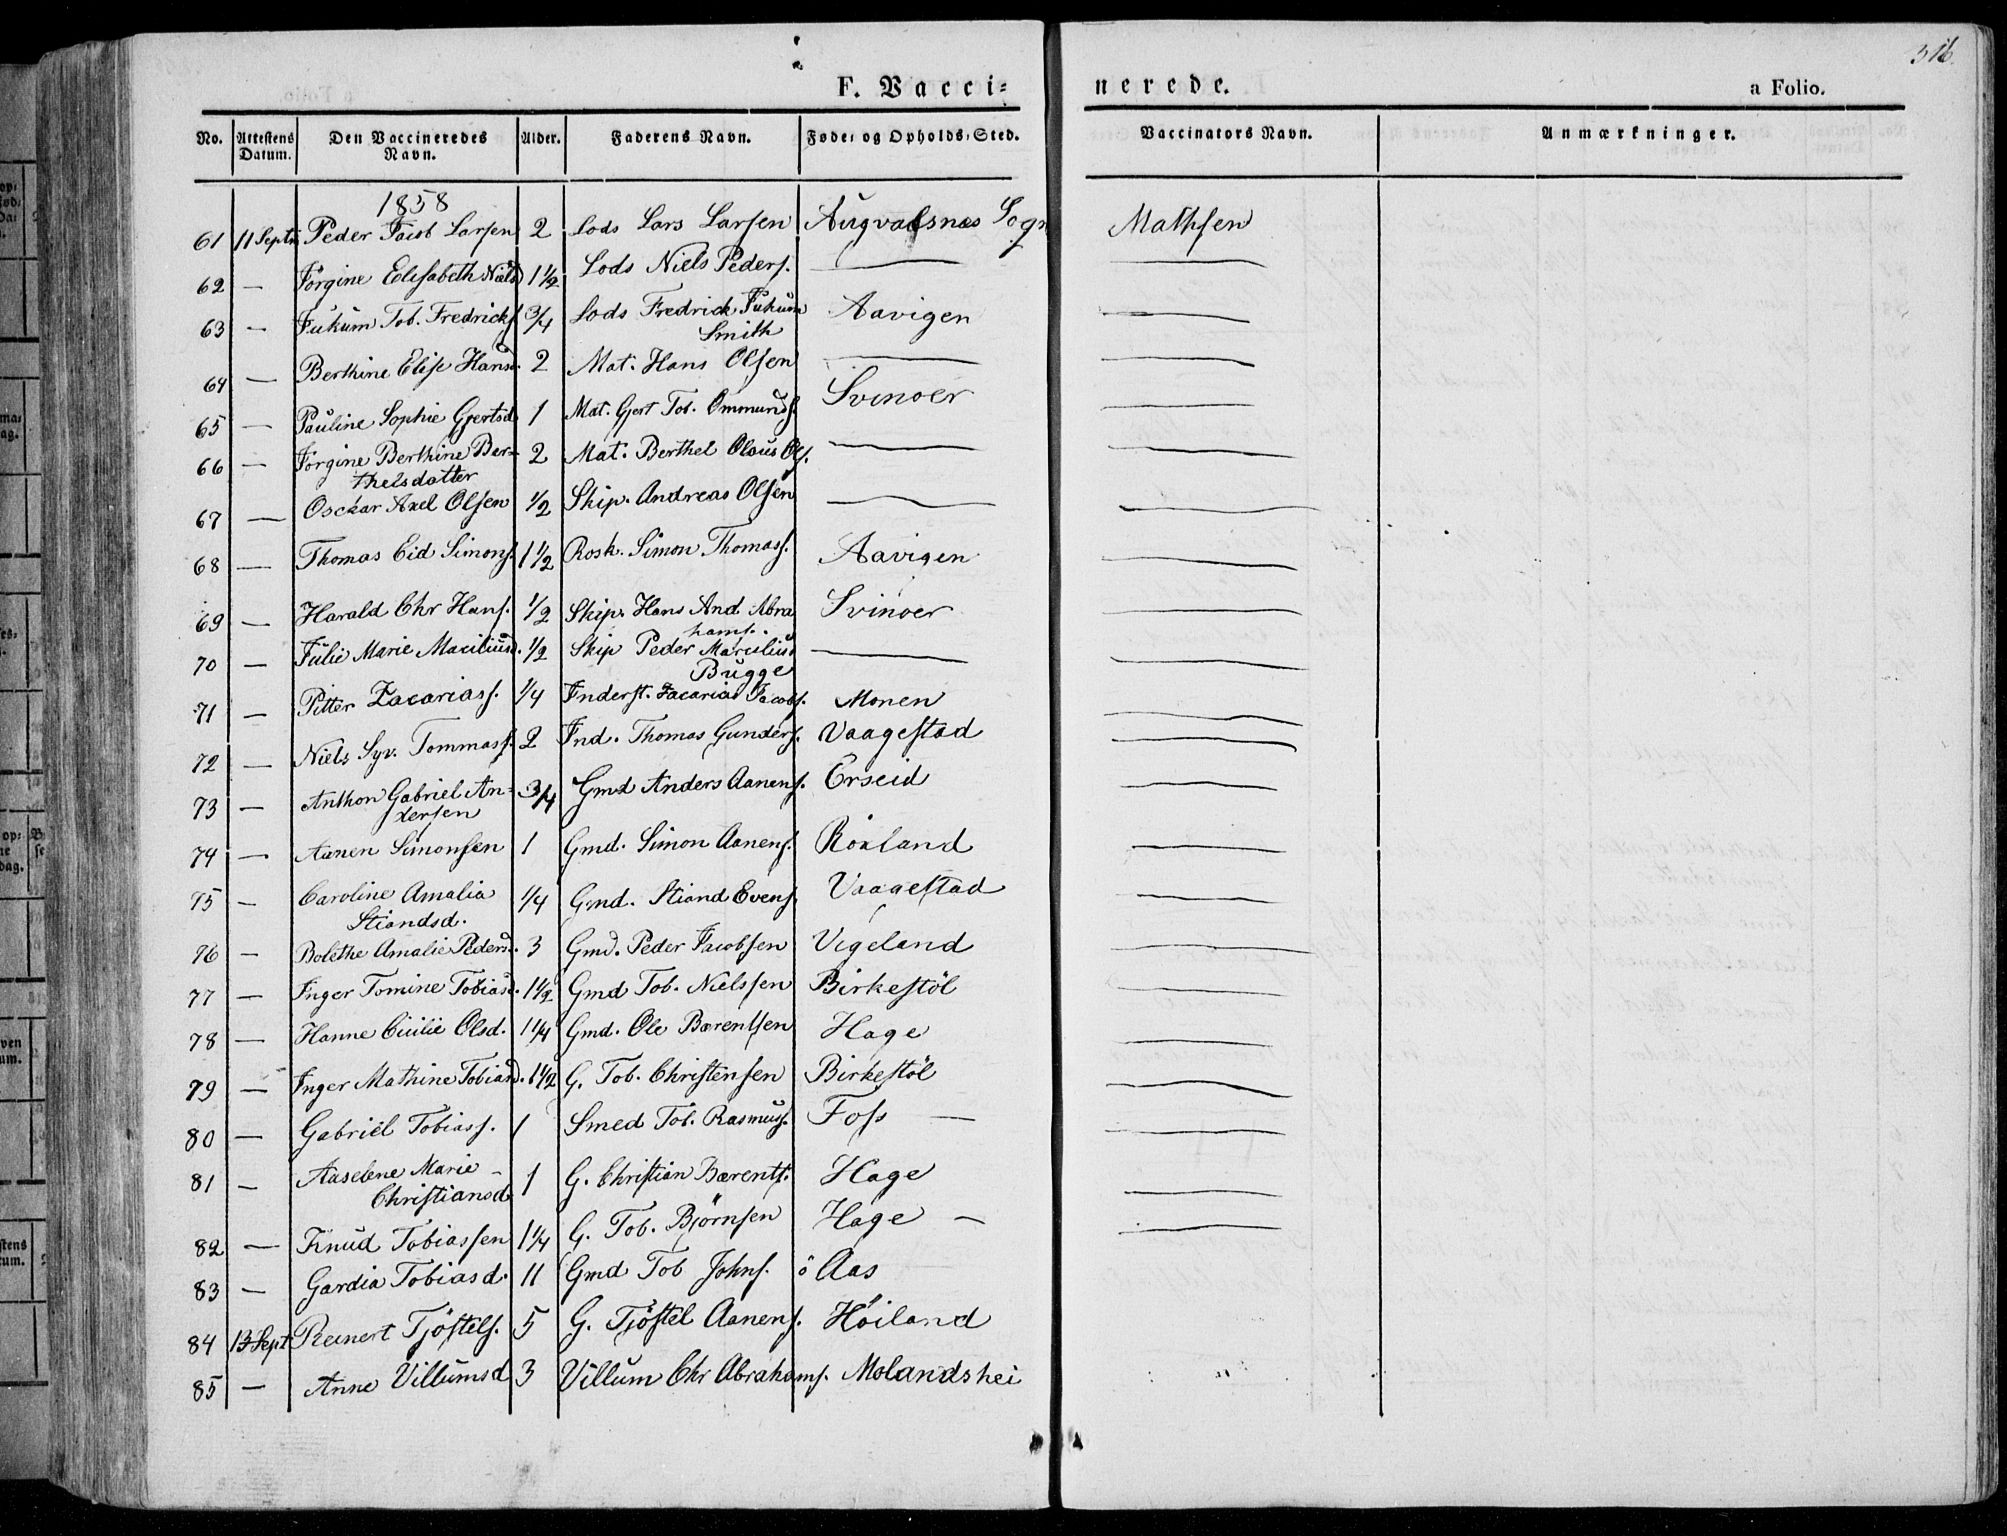 316.
F. Vacci=nerede. a Folio.
No. Attestens Datum. Den Vaccineredes Navn. Alder. Faderens Navn. Føde= og Opholds=Sted. Vaccinators Navn. Anmærkninger.
1858
61 11 Septr Peder Jacob Larsen 2 Lods Lars Larsen Augvalsnes Sogn Mathsen
62 — Jörgine Elisabeth Nielsd 1½ Lods Niels Peders. — —
63 — Jukum Tob. Fredricks. 3/4 Lods Fredrick Jukum Smith Aavigen —
64 — Berthine Elise Hansd. 2 Mat. Hans Olsen — —
65 — Pauline Sophie Gjertsd 1 Mat. Gjert Tob. Ommunds. Svinoer —
66 — Jörgine Berthine Ber=
thelsdatter 2 Mat. Berthel Olaus Ols. — —
67 — Osckar Axel Olsen 1/2 Skip. Andreas Olsen — —
68 — Thomas Eid Simons. 1½ Rosk. Simon Thomass. Aavigen —
69 — Harald Chr Hans. 1/2 Skip. Hans And. Abra
hams. Svinoer —
70 — Julie Marie Maciliusd. 1/2 Skip Peder Marcilius
Bugge — —
71 — Pitter Zacariass. 1/4 Inderst. Zacarias Jacobs. Monen —
72 — Niels Syv. Tommass. 2 Ind. Thomas Gunders. Vaagestad —
73 — Anthon Gabriel An=
dersen 3/4 Gmd Anders Aanens. Erseid —
74 — Aanen Simonsen 1 Gmd. Simon Aanens. Röxland —
75 — Caroline Amalia
Stiandsd. 1/4 Gmd. Stiand Evens. Vaagestad —
76 — Bolethe Amalie Pedersd. 3 Gmd. Peder Jacobsen Vigeland —
77 — Inger Tomine Tobiasd. 1½ Gmd Tob. Nielssen Birkestöl —
78 — Hanne Cicilie Olsd. 1¼ Gmd. Ole Bærentsen Hage —
79 — Inger Mathine Tobiasd. 1½ G. Tob. Christensen Birkestöl —
80 — Gabriel Tobiass. 1 Smed Tob. Rasmuss. Foss — —
81 — Aaselene Marie
Christiansd. 1 G. Christian Bærents. Hage —
82 — Knud Tobiassen 1¼ G. Tob. Bjørnsen Hage — —
83 — Gardia Tobiasd. 11 Gmd Tob Johns. ö Aas
84 13 Sept Reinert Tjöstels. 5 G. Tjöstel Aanens. Höiland
85 — Anne Villumsd 3 Villum Chr Abrahams. Molandshei